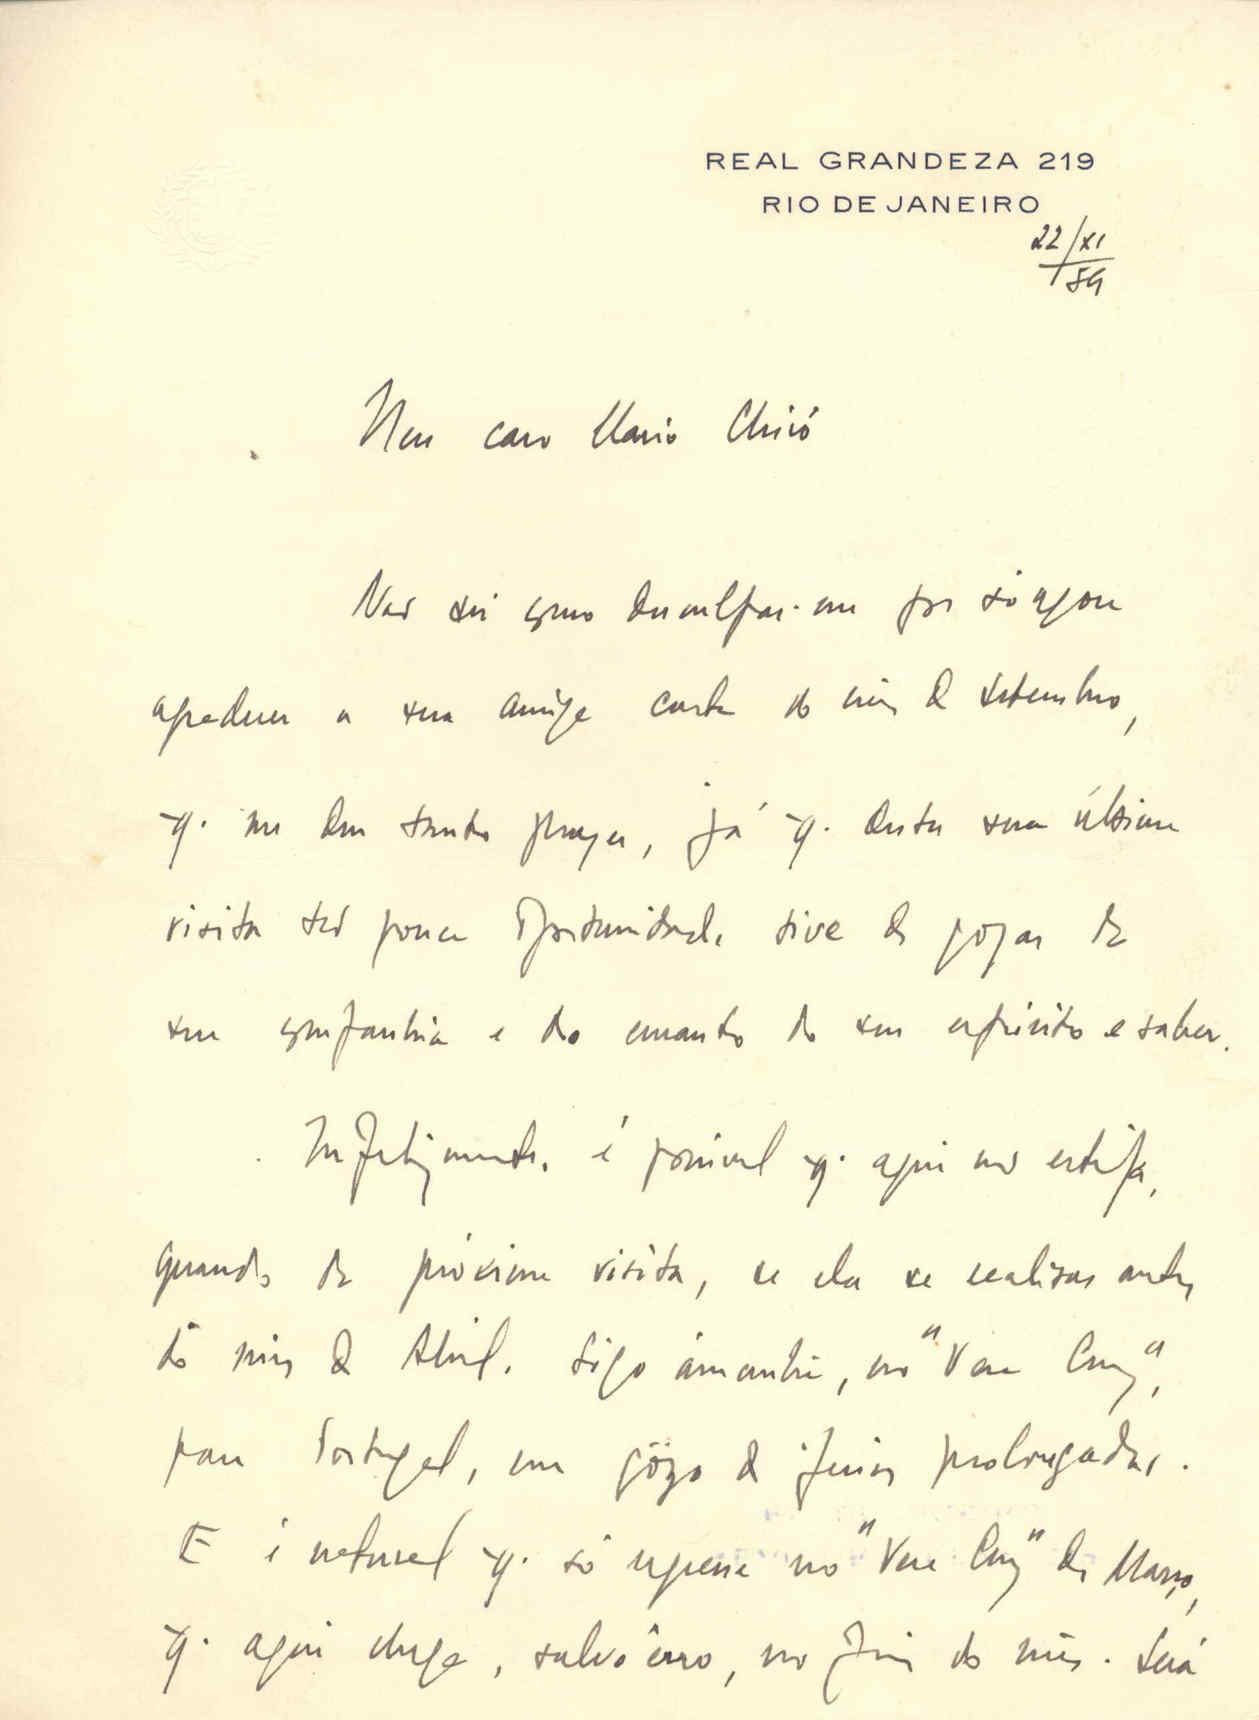 REAL GRANDEZA 219
RIO DE JANEIRO
22/XI
59
Meu caro Mario Chicó
Não sei como desculpar-me por só agora
agradecer a sua amiga carta do mês de setembro,
q. me deu tanto prazer, já q. desta sua última
visita tão pouca oportunidade tive de gozar da
sua companhia e do encanto do seu espírito e saber.
Infelizmente, é possível q. aqui não esteja,
quando da próxima visita, se ela se realizar antes
do mês de Abril. Sigo àmanhã, no "Vera Cruz",
para Portugal, em gôzo de férias prolongadas.
E é natural q. só regresse no "Vera Cruz" de Março,
q. aqui chega, salvo êrro, no fim do mês. Será